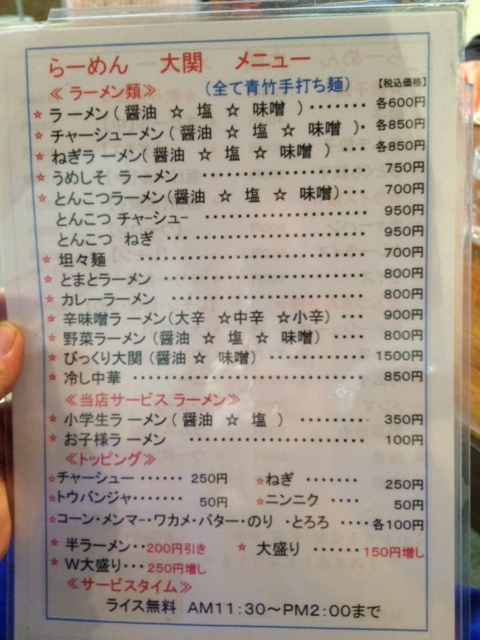 らーめん 大関 メニュー
≪ ラーメン類 ≫ (全て青竹手打ち麺) 【税込価格】
☆ ラーメン( 醤油 ☆ 塩 ☆ 味噌 ) ······· 各600円
☆ チャーシューメン( 醤油 ☆ 塩 ☆ 味噌 )· 各850円
☆ ねぎラーメン( 醤油 ☆ 塩 ☆ 味噌 ) ··· 各850円
☆ うめしそ ラーメン ·················· 750円
☆ とんこつラーメン(醤油 ☆ 塩 ☆ 味噌) ··· 700円
とんこつ チャーシュー ·················· 950円
とんこつ ねぎ ··· ·················· 950円
☆ 坦々麺 ······························ 700円
☆ とまとラーメン ······················ 800円
☆ カレーラーメン ······················ 800円
☆ 辛味噌ラーメン(大辛 ☆中辛 ☆小辛) ··· 900円
☆ 野菜ラーメン (醤油 ☆ 塩 ☆ 味噌) ···· 800円
☆ びっくり大関 (醤油 ☆ 味噌) ········ 1500円
☆ 冷し中華 ···························· 850円
≪当店サービス ラーメン≫
☆ 小学生ラーメン( 醤油 ☆ 塩 ) ········ 350円
☆ お子様ラーメン ······················ 100円
≪トッピング≫
☆チャーシュー ······ 250円 ☆ねぎ ······ 250円
☆トウバンジャ ······ 50円 ☆ニンニク ···· 50円
☆コーン・メンマ・ワカメ・バター・のり ・とろろ ···· 各100円
☆ 半ラーメン··200円引き ☆ 大盛り ······ 150円増し
☆ W大盛り···250円増し
≪サービスタイム≫
ライス無料 AM11:30～PM2:00まで